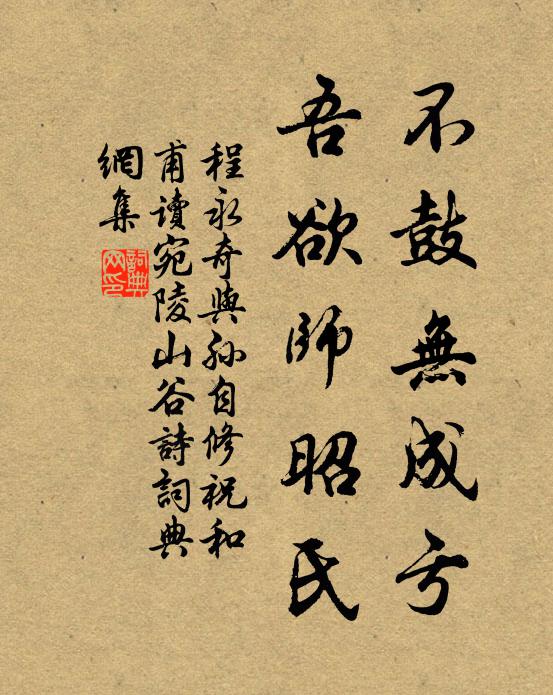 不鼓無成亏
吾欲師昭氏
程永奇與孙自修祝和
甫讀宛陵山谷詩詞典
網集
詞典
网印